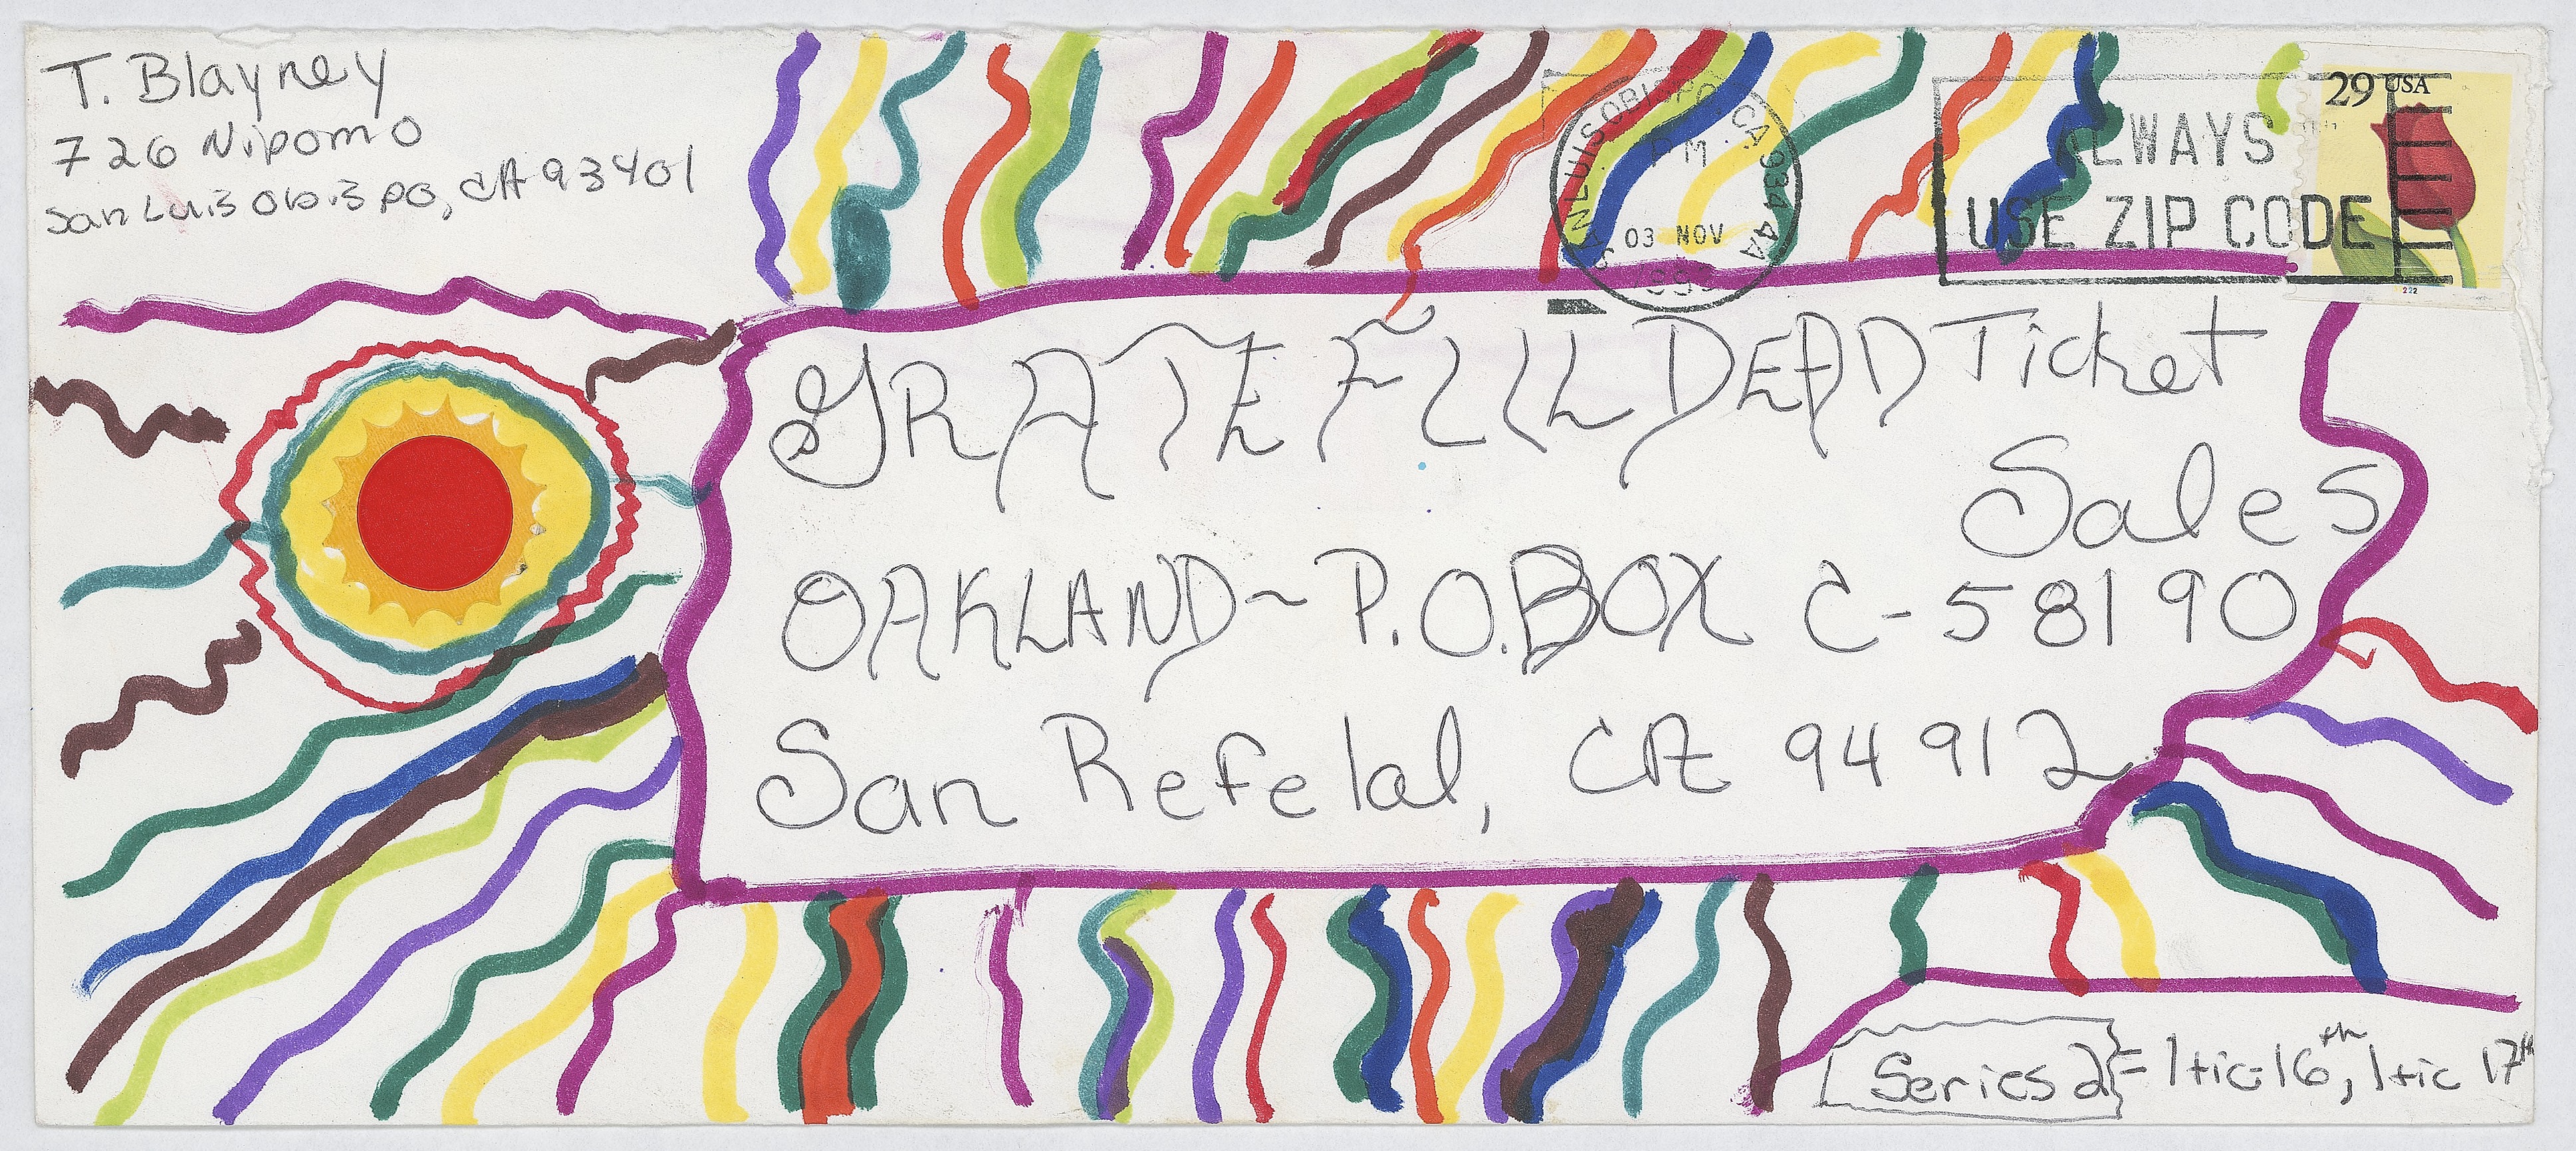 T. Blayney
726 Nipomo
San Luis Obispo, CA 93401
SAN LUIS OBISPO CA 934 4A
PM
03 NOV
ALWAYS
USE ZIP CODE
29 USA
222
GRATEFUL DEAD Ticket
Sales
OAKLAND~ P.O.BOX C-58190
San Refelal, CA 94912
Series 2 = 1 tic-16th, 1 tic 17th